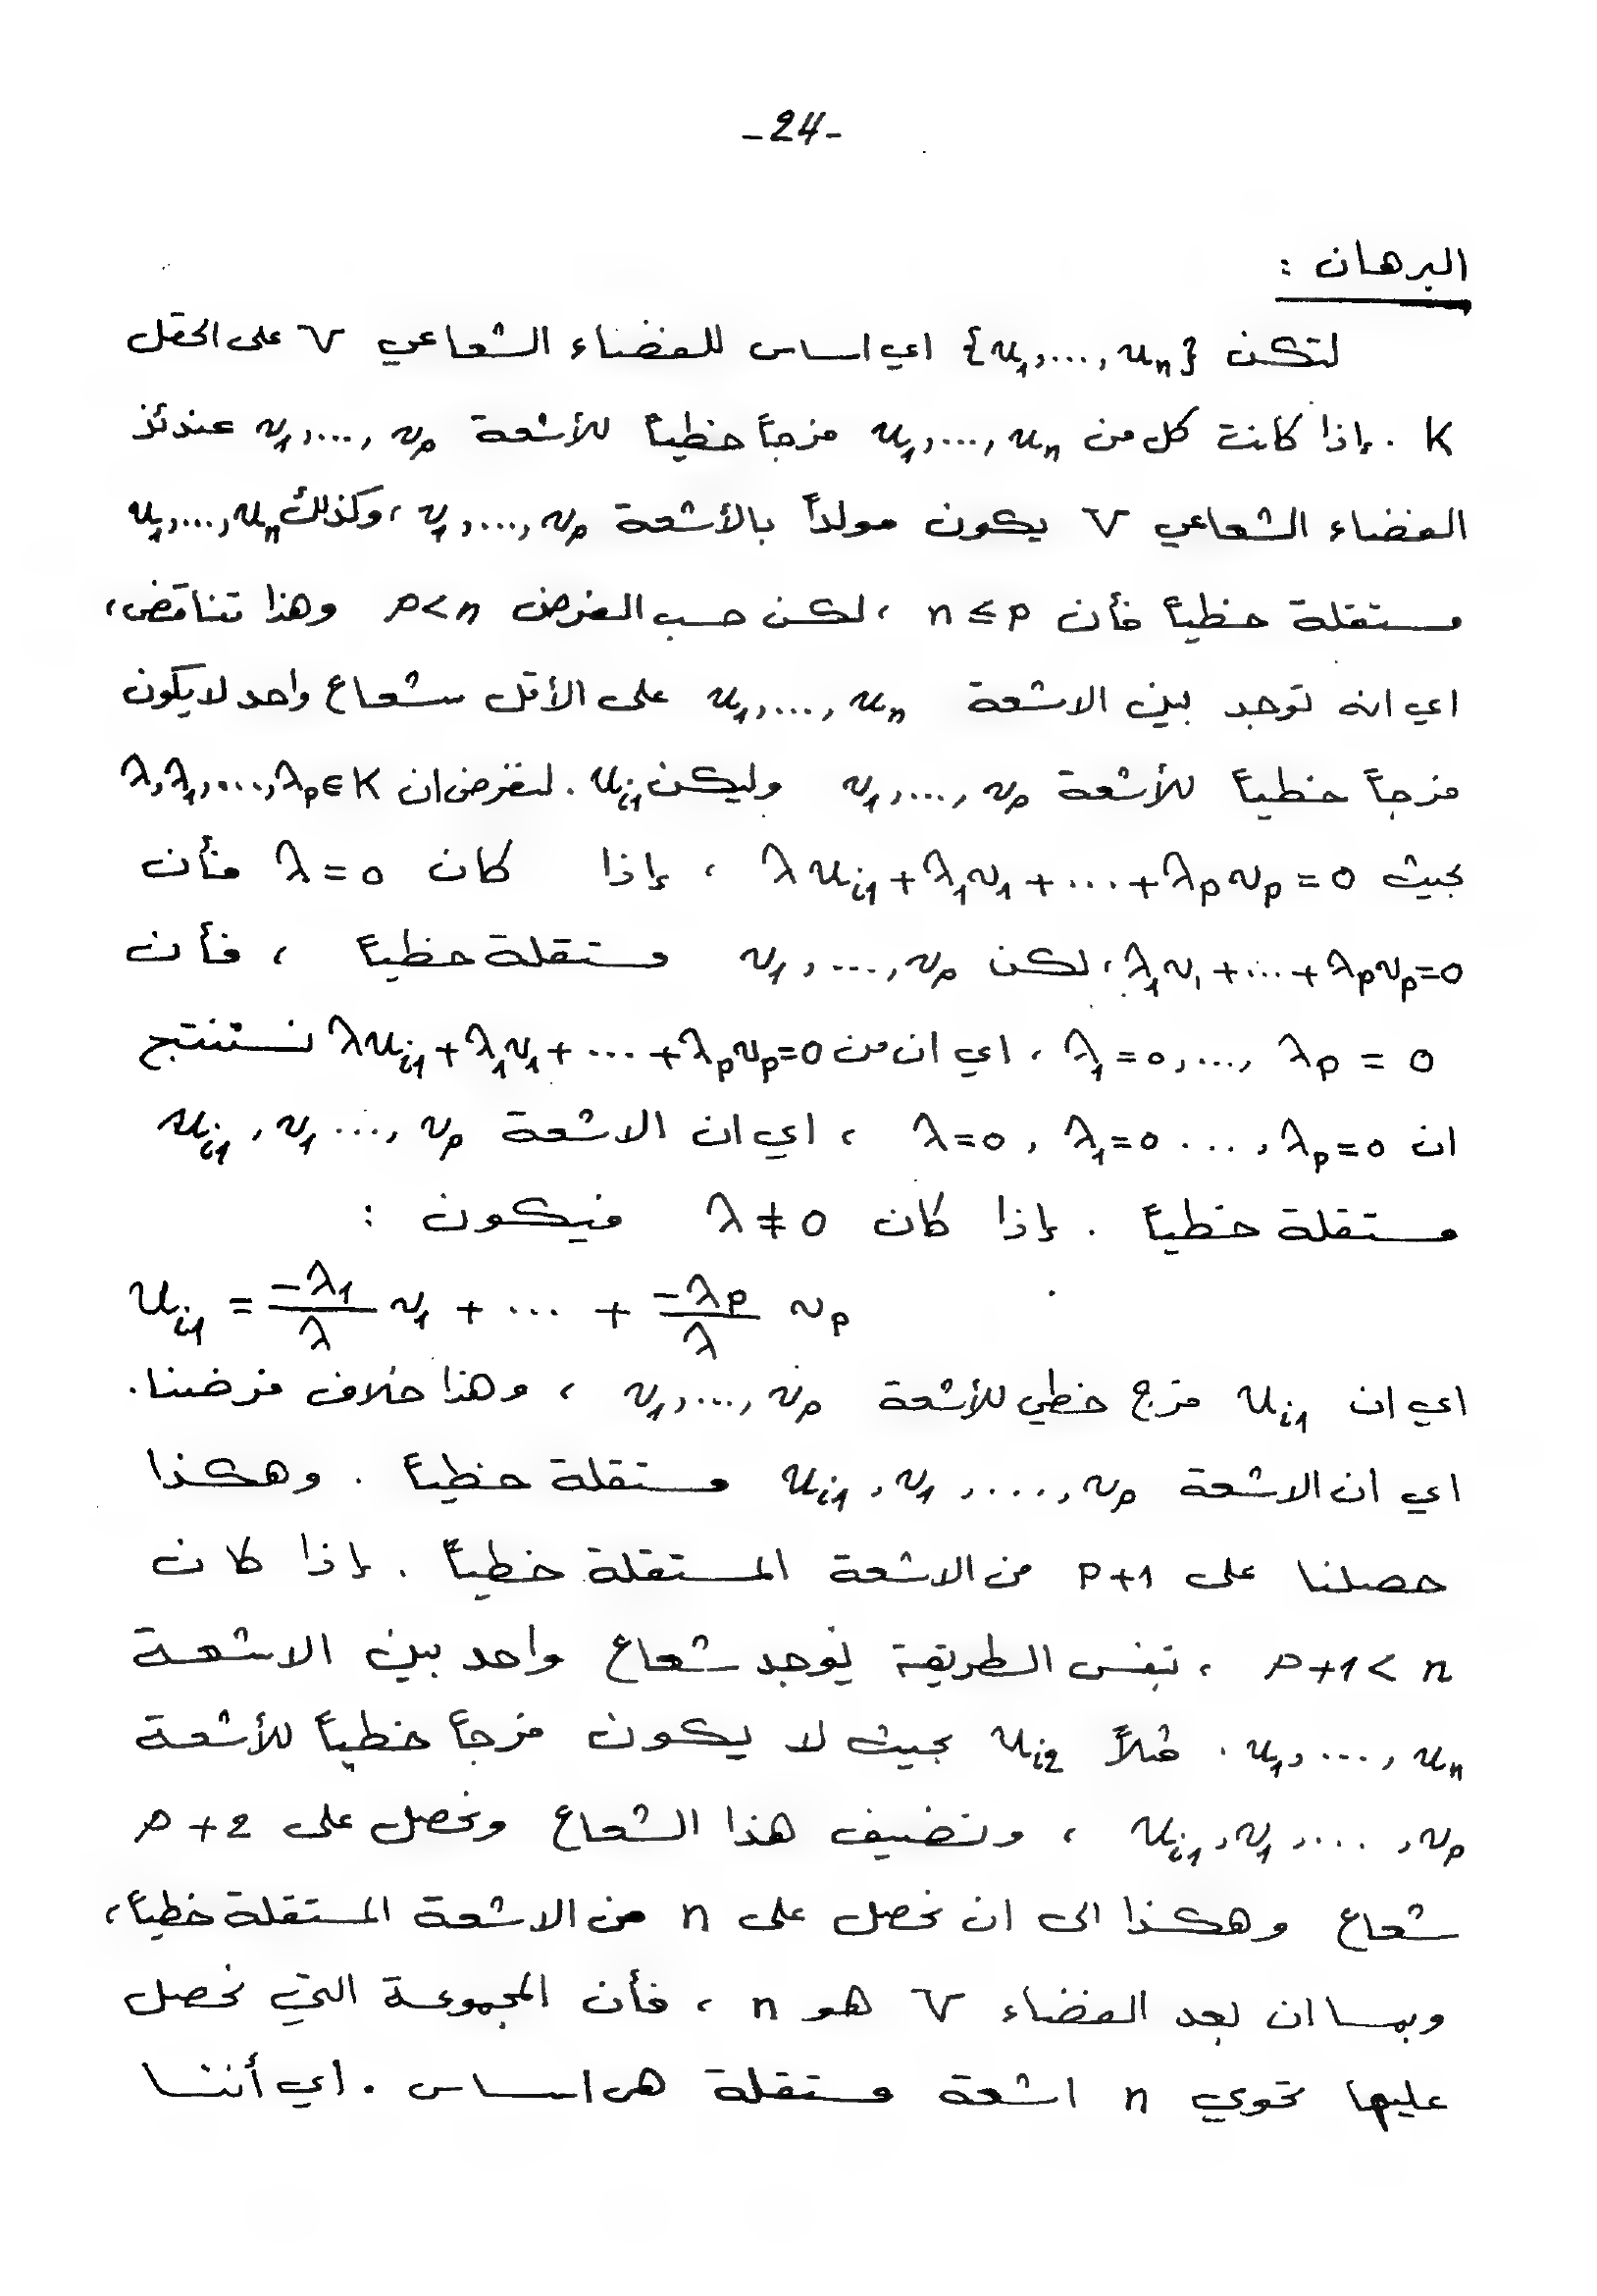 -24-
البرهان :
لتكن {u₁,...,uₙ} اي اساس للفضاء الشعاعي V على الحقل
K . إذا كانت كل من u₁,...,uₙ مزجاً خطياً للأشعة v₁,...,vₚ عندئذ
الفضاء الشعاعي V يكون مولداً بالأشعة v₁,...,vₚ ، وكذلك u₁,...,uₙ
مستقلة خطياً فأن n ≤ p ، لكن حسب الفرض p<n وهذا تناقض ،
اي انه توجد بين الاشعة u₁,...,uₙ على الأقل شعاع واحد لا يكون
مزجاً خطياً للأشعة v₁,...,vₚ وليكن u_{i1} . لنفرض ان λ,λ₁,...,λₚ∈K
بحيث λu_{i1}+λ₁v₁+...+λₚvₚ=0 ، إذا كان λ=0 فأن
λ₁v₁+...+λₚvₚ=0 ، لكن v₁,...,vₚ مستقلة خطياً ، فأن
λ₁=0,..., λₚ=0 ، اي ان من λu_{i1}+λ₁v₁+...+λₚvₚ=0 نستنتج
ان λ=0 , λ₁=0 ..., λₚ=0 ، اي ان الاشعة u_{i1} , v₁ ..., vₚ
مستقلة خطياً . إذا كان λ≠0 فيكون :
u_{i1} = \frac{-λ₁}{λ} v₁ + ... + \frac{-λₚ}{λ} vₚ
اي ان u_{i1} مزج خطي للأشعة v₁,...,vₚ ، وهذا خلاف فرضنا .
اي ان الاشعة u_{i1} , v₁ ,....,vₚ مستقلة خطياً . وهكذا
حصلنا على p+1 من الاشعة المستقلة خطياً . إذا كان
p+1< n ، بنفس الطريقة يوجد شعاع واحد بين الاشعة
u₁,...,uₙ . مثلاً u_{i2} بحيث لا يكون مزجاً خطياً للأشعة
u_{i1},v₁,....,vₚ ، ونضيف هذا الشعاع ونحصل على p+2
شعاع وهكذا الى ان نحصل على n من الاشعة المستقلة خطياً ،
وبما ان بعد الفضاء V هو n ، فأن المجموعة التي نحصل
عليها تحوي n اشعة مستقلة هي اساس . اي أننا